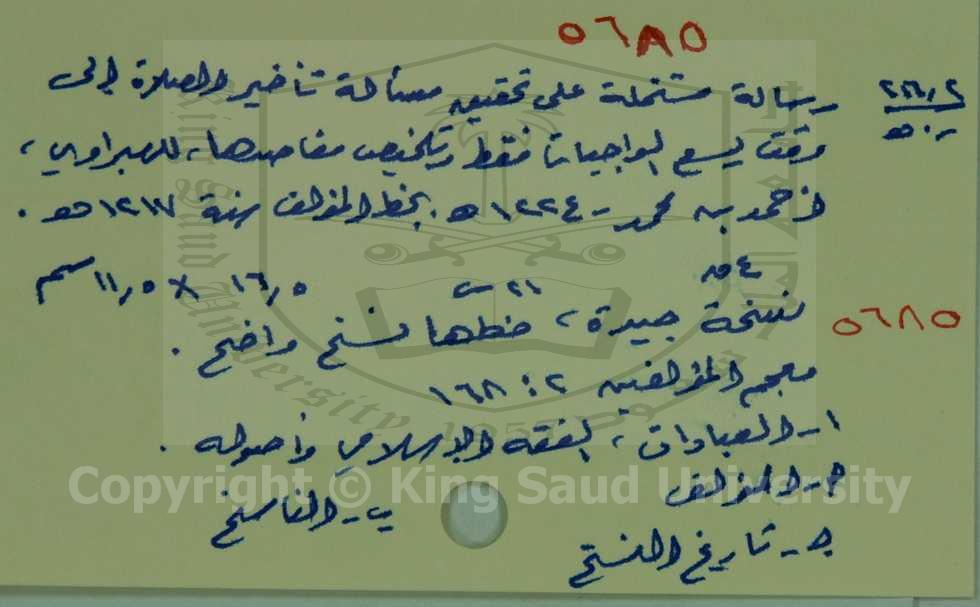 ٥٦٨٥
٢١٦٫٢
رسالة مشتملة على تحقيق مسألة تأخير الصلاة إلى
وقت يسع الواجبات فقط وتلخيص مقاصدها، للهبراوي،
أحمد بن محمد - ١٢٢٤ هـ. بخط المؤلف سنة ١٢١٧ هـ.
٤ ق ٢١ س ١٦٫٥ × ١١٫٥ سم
نسخة جيدة، خطها نسخ واضح.
٥٦٨٥
معجم المؤلفين ٢ : ١٦٨
١- العبادات، الفقه الإسلامي وأصوله.
أ- المؤلف
ب- الناسخ
جـ- تاريخ النسخ
King Saud University
1957
Copyright © King Saud University